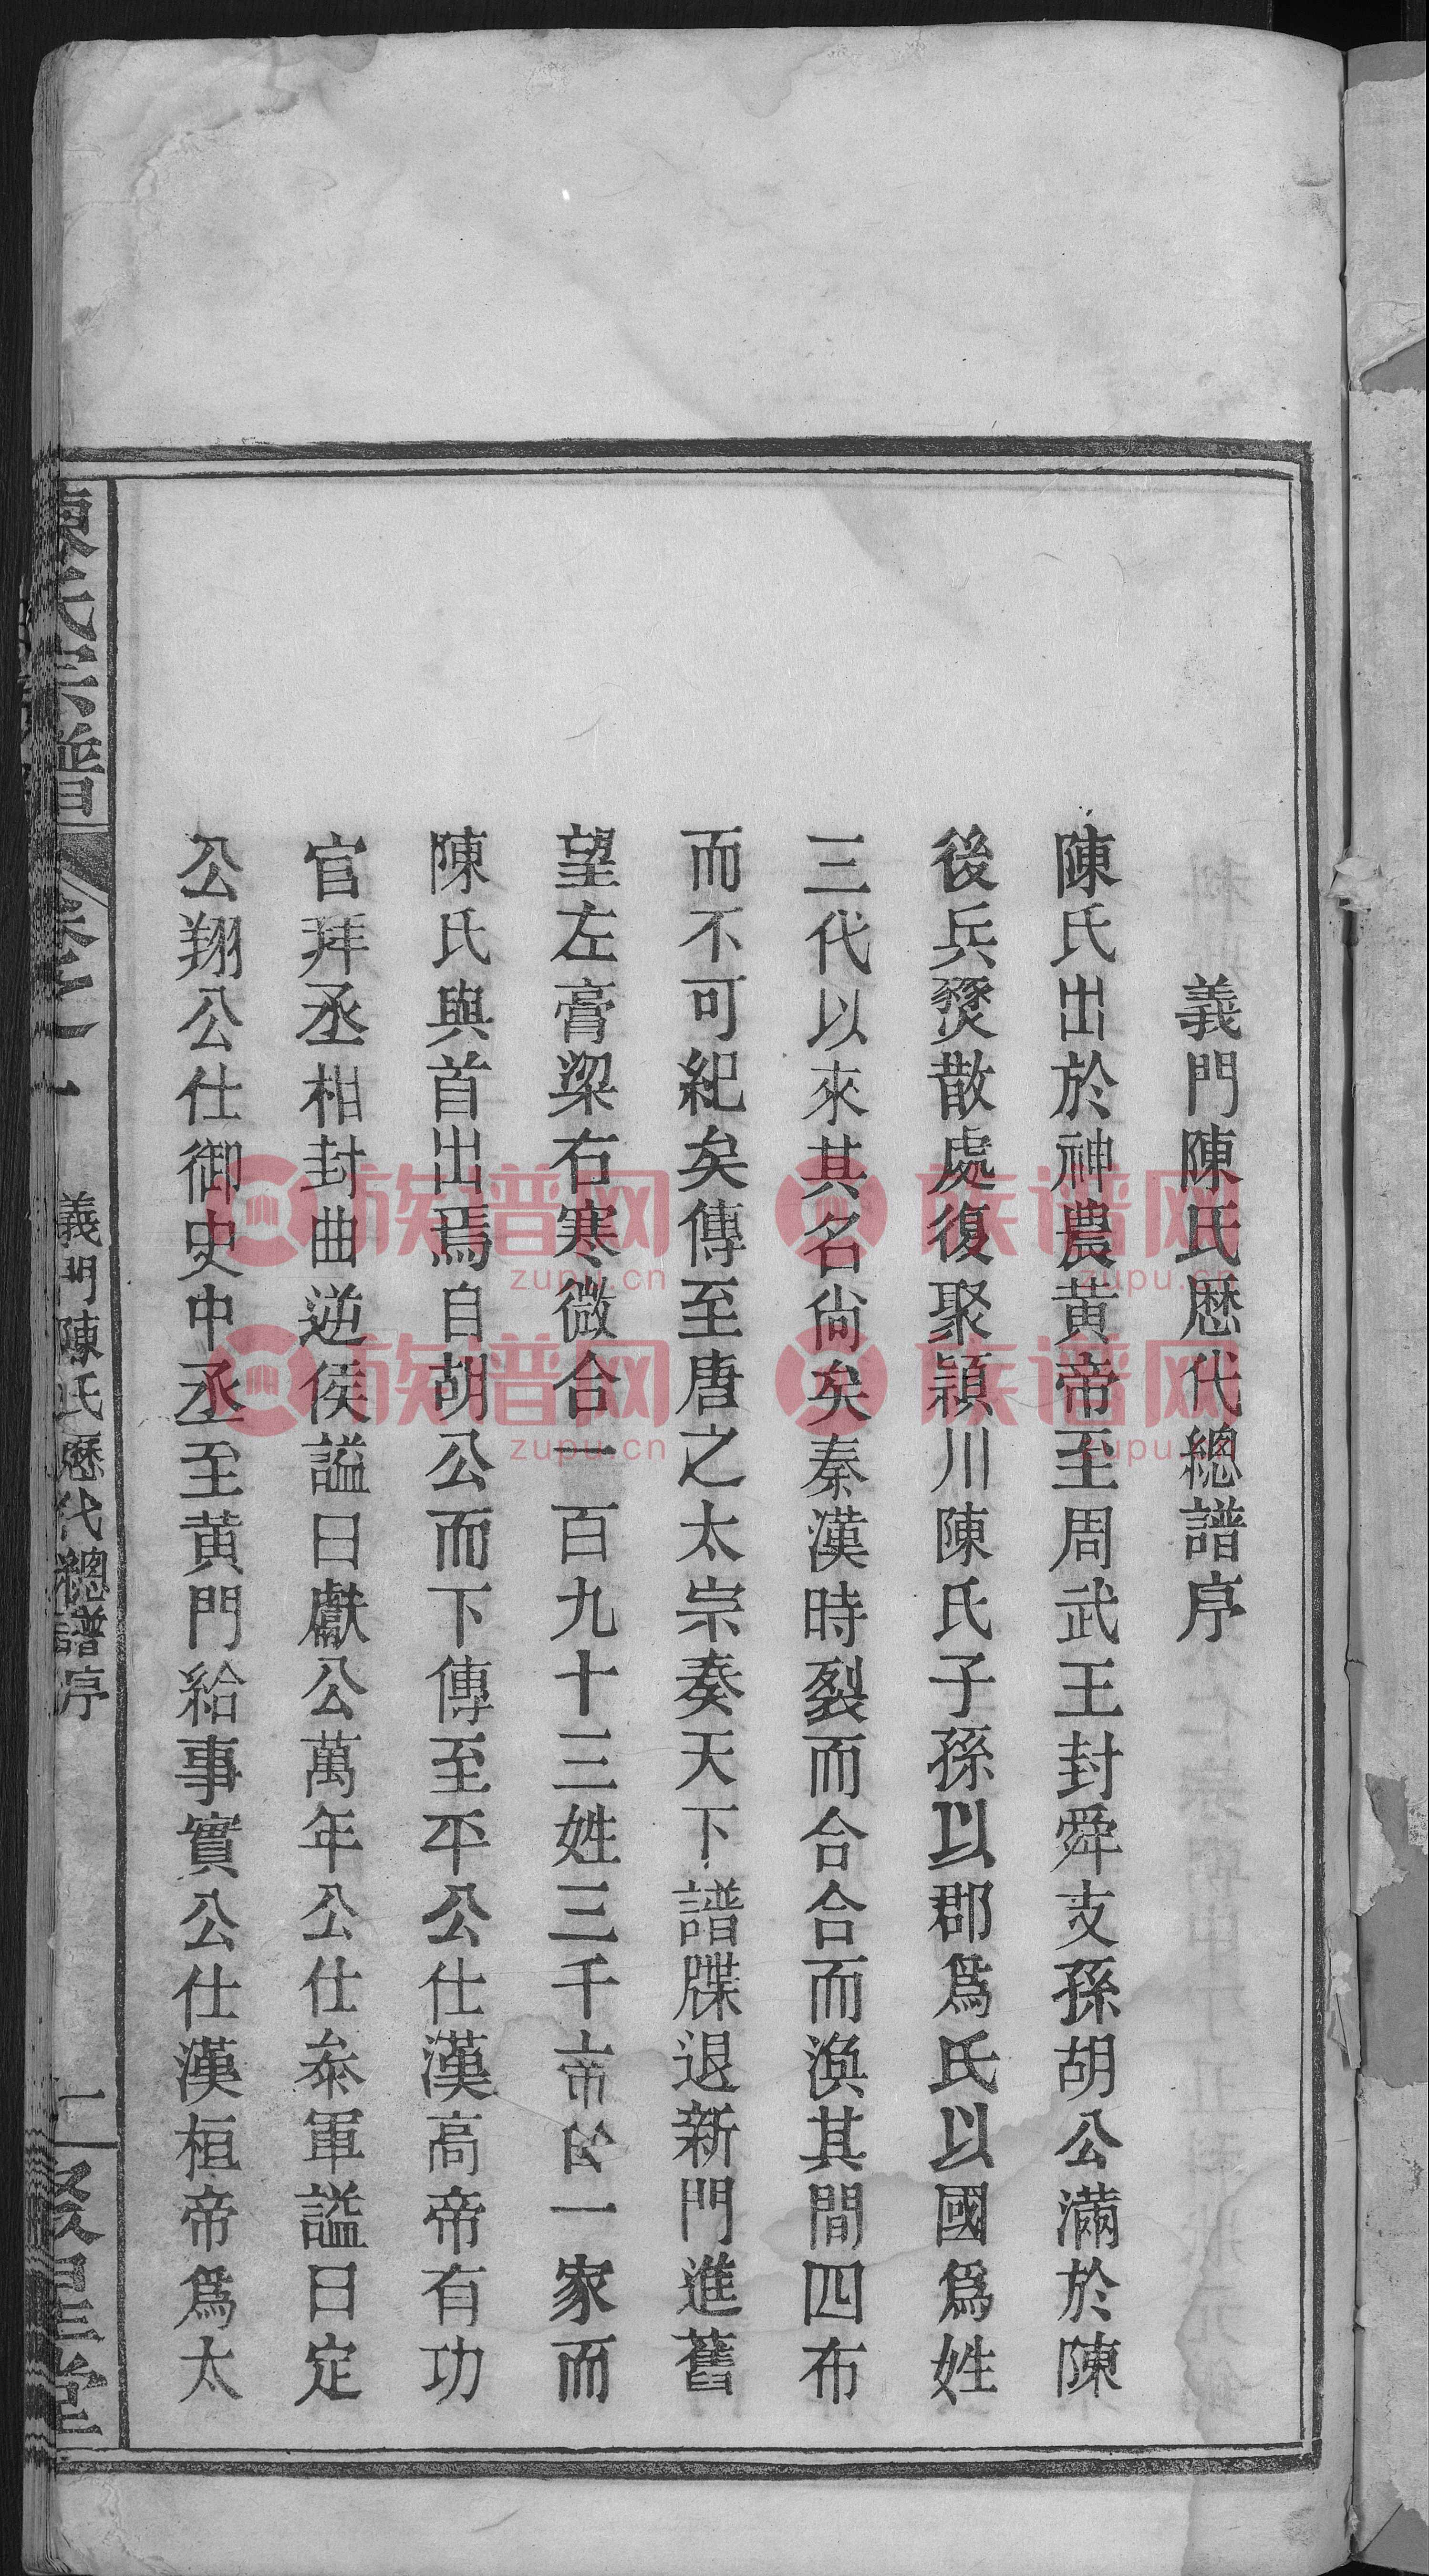 義門陳氏歷代總譜序
陳氏出於神農黄帝至周武王封舜支孫胡公滿於陳
後兵燹散處復聚頴川陳氏子孫以郡爲氏以國爲姓
三代以來其名尙矣秦漢時裂而合合而渙其間四布
而不可紀矣傳至唐之太宗奏天下譜牒退新門進舊
望左膏梁右寒微合一百九十三姓三千 一家而
陳氏與首出焉自胡公而下傳至平公仕漢高帝有功
官拜丞相封曲逆侯諡曰獻公萬年公仕叅軍諡曰定
公翔公仕御史中丞至黄門給事實公仕漢桓帝爲太
陳氏宗譜
卷之一
義門陳氏歷代總譜序
一
聚星堂
族谱网
zupu.cn
族谱网
zupu.cn
族谱网
zupu.cn
族谱网
zupu.cn